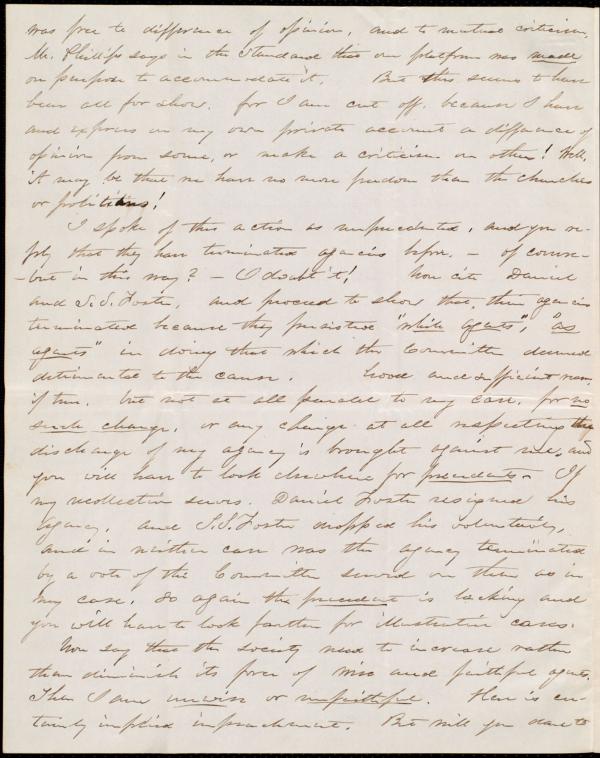 was free to difference of opinion, and to mutual criticism.
Mr. Phillips says in the Standard that our platform was made
on purpose to accommodate it. But this seems to have
been all for show. for I am cut off, because I have
and express on my own private account a difference of
opinion from some, or make a criticism on others! Well,
it may be that we have no more freedom than the churches
or politicians!
I spoke of this action as unprecedented, and you re-
ply that they have terminated agencies before. – of course –
– but in this way? – I doubt it! You cite Daniel
and S. S. Foster, and proceed to show that, their agencies
terminated because they persisted "while agents", "as
agents" in doing that which the Committee deemed
detrimental to the cause. Good and sufficient reason
if true. But not at all parallel to my case, for no
such charge, or any charge at all respecting the
discharge of my agency is brought against me, and
you will have to look elsewhere for precedents. If
my recollection serves. Daniel Foster resigned his
agency, and S. S. Foster dropped his voluntarily,
and in neither case was the agency terminated
by a vote of the Committee served on them as in
my case. So again the precedent is lacking and
you will have to look farther for illustrative cases.
You say that the society need to increase rather
than diminish its force of wise and faithful agents.
Then I am unwise or unfaithful. Here is cer-
tainly implied impeachment. But will you dare to